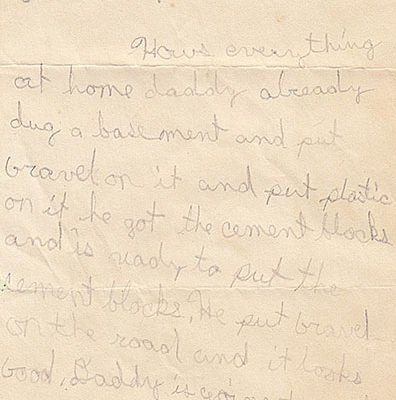 Hows everything
at home daddy already
dug a basement and put
gravel on it and put plastic
on it he got the cement blocks
and is ready to put the
cement blocks, He put gravel
on the road and it looks
Good, Daddy is